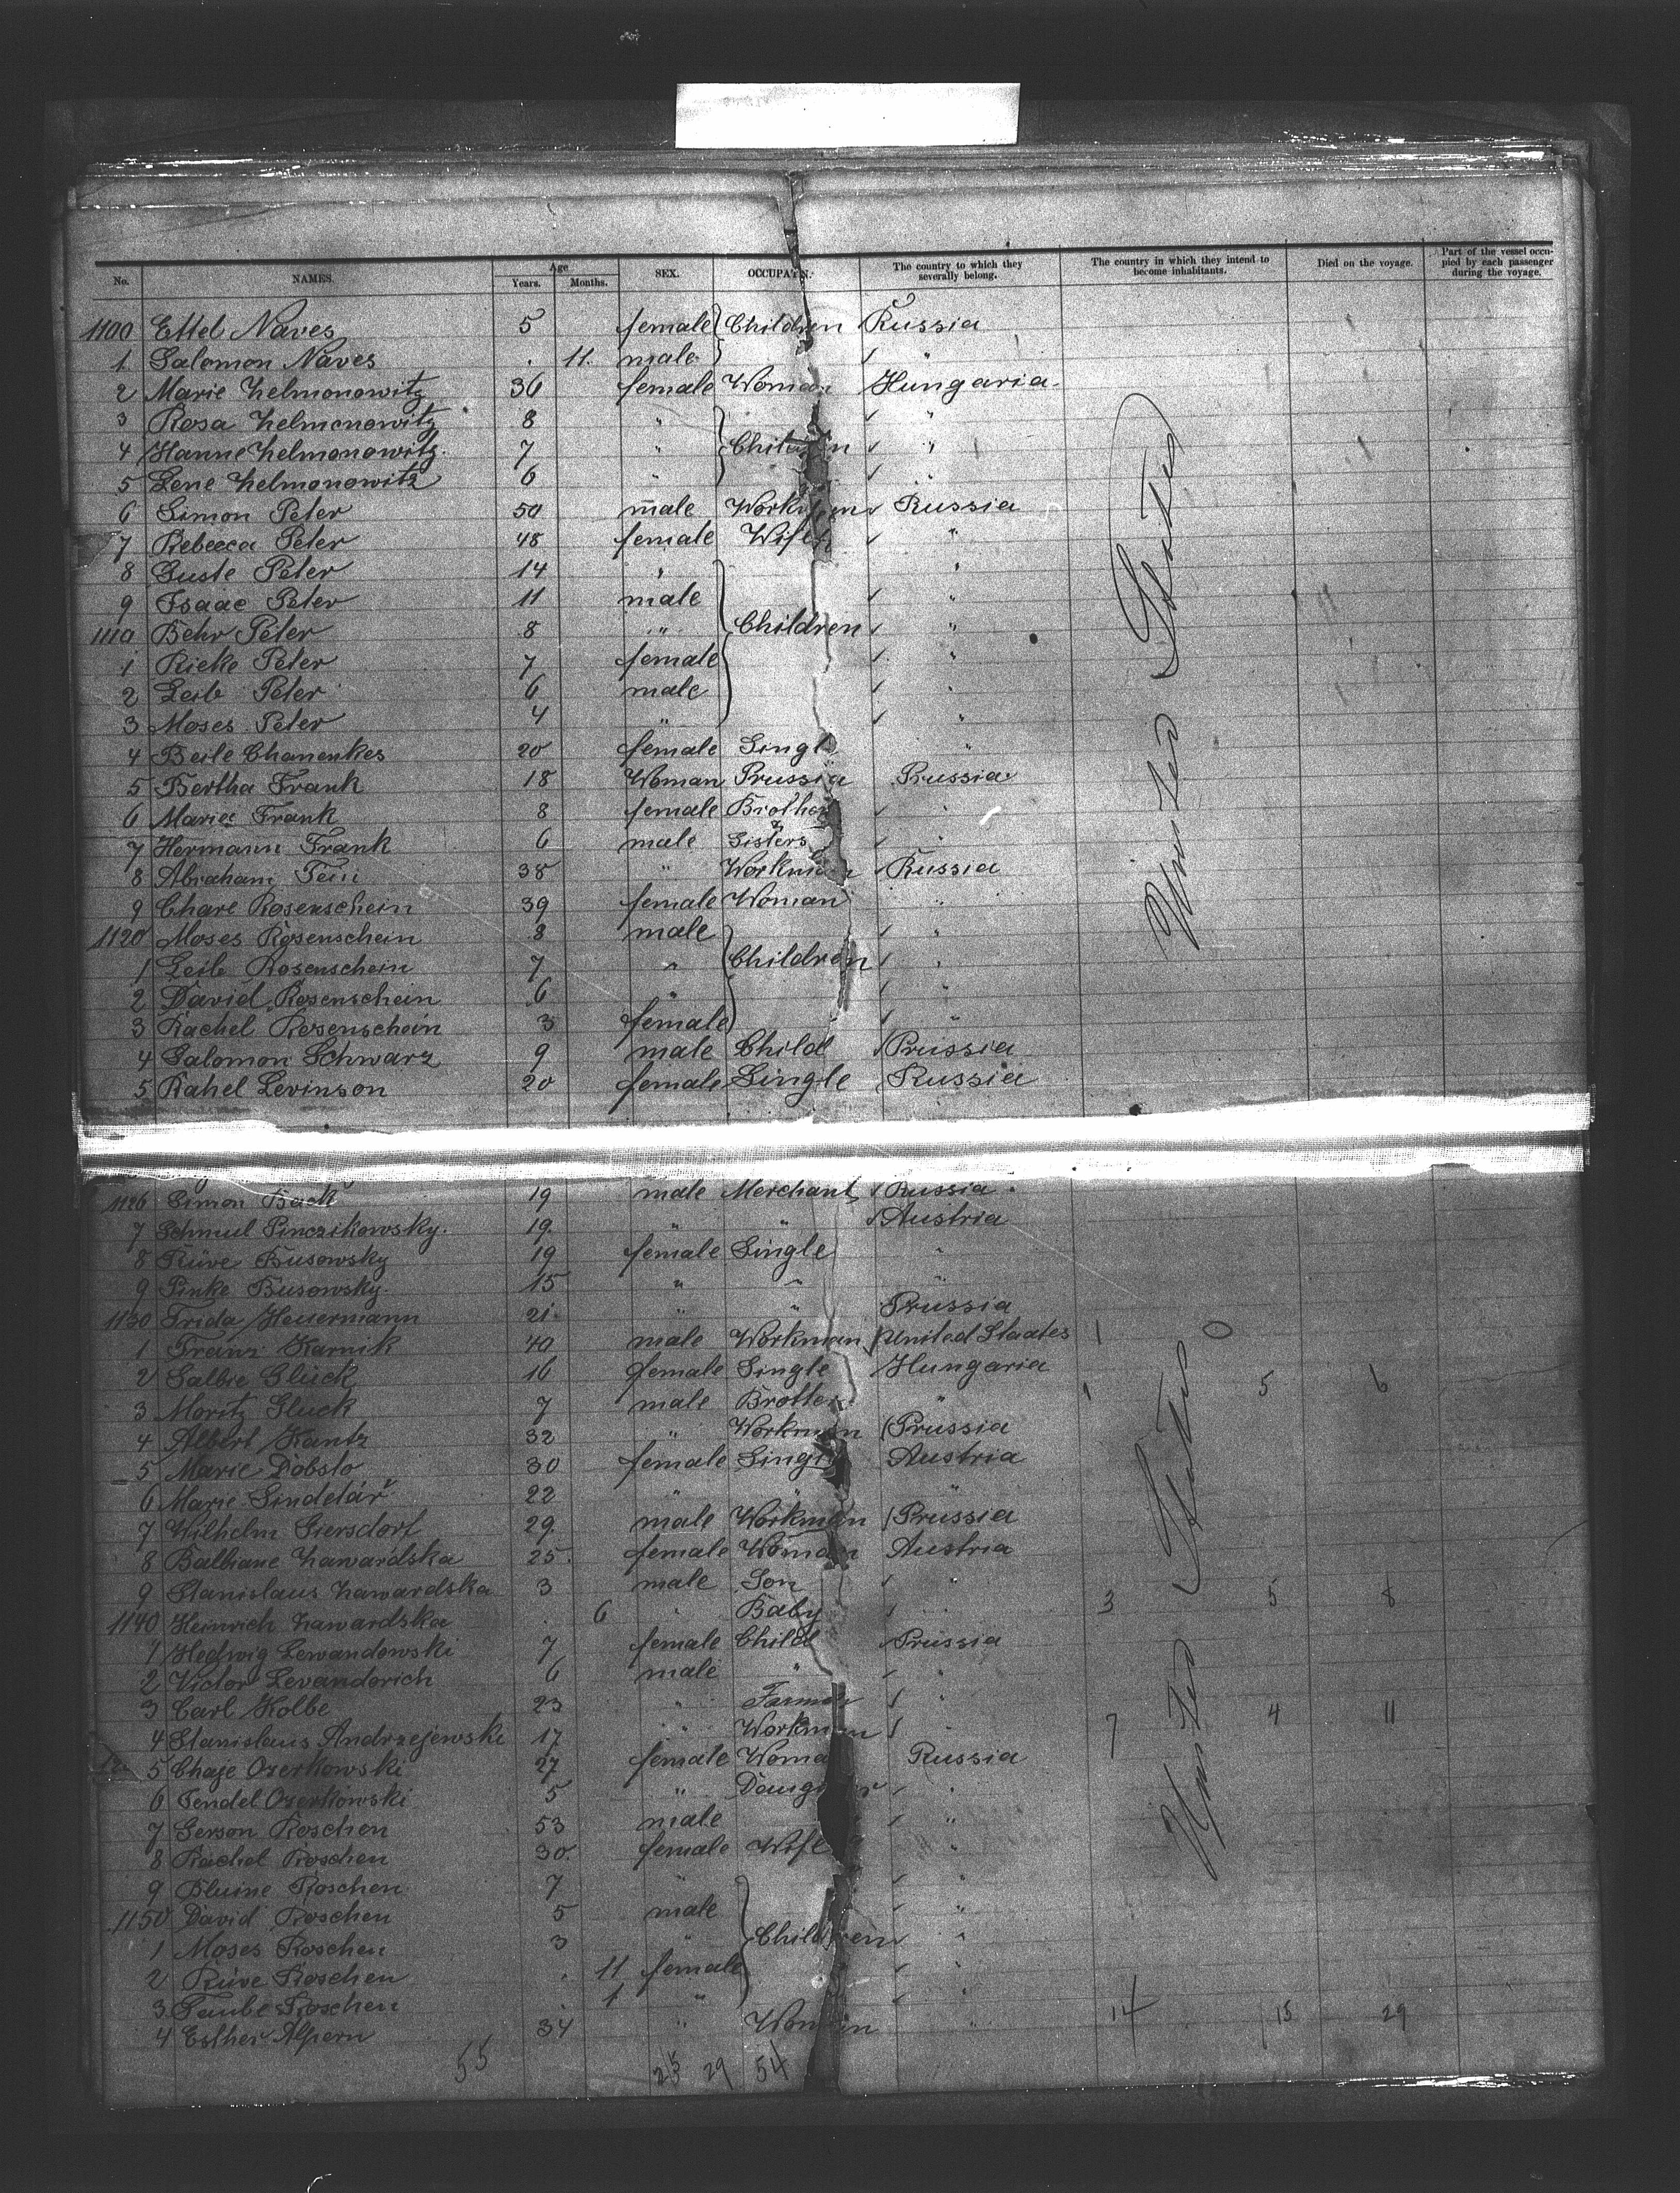 No. NAMES. Age Years. Months. SEX. OCCUPAT'N. The country to which they severally belong. The country in which they intend to become inhabitants. Died on the voyage. Part of the vessel occupied by each passenger during the voyage.
1100 Ettel Naves 5 female Children Russia
1 Salomon Naves . 11. male "
2 Marie Zelmonowitz 36 female Woman Hungaria
3 Rosa Zelmonowitz 8 " "
4 Hanne Zelmonowitz 7 " Children "
5 Lene Zelmonowitz 6 " "
6 Simon Peter 50 male Workman Russia
7 Rebecca Peter 48 female Wife "
8 Guste Peter 14 " "
9 Isaac Peter 11 male "
1110 Behr Peter 8 " Children "
1 Rieke Peter 7 female "
2 Leib Peter 6 male "
3 Moses Peter 4 " "
4 Beile Chanenkes 20 female Single "
5 Bertha Frank 18 Woman Prussia Prussia
6 Marie Frank 8 female Brother "
7 Hermann Frank 6 male & Sisters "
8 Abraham Fein 38 " Workman Russia
9 Chare Rosenschein 39 female Woman "
1120 Moses Rosenschein 8 male "
1 Leib Rosenschein 7 " Children "
2 David Rosenschein 6 " "
3 Rachel Rosenschein 3 female "
4 Salomon Schwarz 9 male Child Prussia
5 Rahel Levinson 20 female Single Russia
United States
1126 Simon Back 19 male Merchant Russia
7 Schmul Pinczikowsky. 19. " " Austria
8 Rüve Busowsky 19 female Single "
9 Pinke Busowsky. 15 " " "
1130 Frida Heuermann 21 " " Prussia
1 Franz Karnik 40 male Workman United Staates 1 0
2 Salbie Glück 16 female Single Hungaria 1 5 6
3 Moritz Gluck 7 male Brother "
4 Albert Kantz 32 " Workman Prussia
5 Marie Dobslo 30 female Single Austria
6 Marie Sindelář 22 " " "
7 Wilhelm Giersdorf 29. male Workman Prussia
8 Balbiane Zawardska 25. female Woman Austria
9 Stanislaus Zawardska 3 male Son " 3 5 8
1140 Heinrich Zawardska . 6 " Baby "
1 Hedwig Lewandowski 7 female Child Prussia
2 Victor Levandorich 6 male " "
3 Carl Kolbe 23 " Farmer "
4 Stanislaus Andrzejewski 17 " Workman " 7 4 11
5 Chaje Ozerkowski 27 female Woman Russia
6 Fendel Ozerkowski 5 " Daughter "
7 Gerson Roschen 53 male "
8 Rachel Roschen 30. female Wife "
9 Bluine Roschen 7 " "
1150 David Roschen 5 male "
1 Moses Roschen 3 " Children "
2 Rüve Roschen . 11 female "
3 Taube Roschen . 1 " "
4 Esther Alpern 34 " Woman " 14 15 29
United States
55 25 29 54